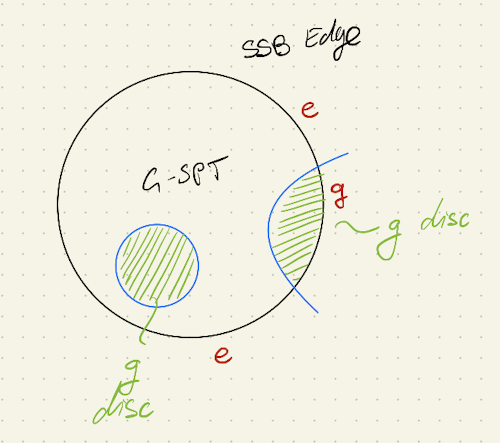 SSB Edge
e
G-SPT
g
g disc
e
g
disc